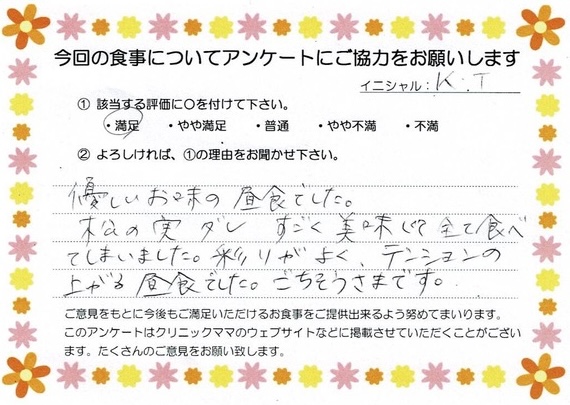 今回の食事についてアンケートにご協力をお願いします
イニシャル： K.T
① 該当する評価に〇を付けて下さい。
・満足 ・やや満足 ・普通 ・やや不満 ・不満
② よろしければ、①の理由をお聞かせ下さい。
優しいお味の昼食でした。
松の実ダレ すごく美味しくて全て食べ
てしまいました。彩りがよく、テンションの
上がる昼食でした。ごちそうさまです。
ご意見をもとに今後もご満足いただけるお食事をご提供出来るよう努めてまいります。
このアンケートはクリニックママのウェブサイトなどに掲載させていただくことがござい
ます。たくさんのご意見をお願い致します。